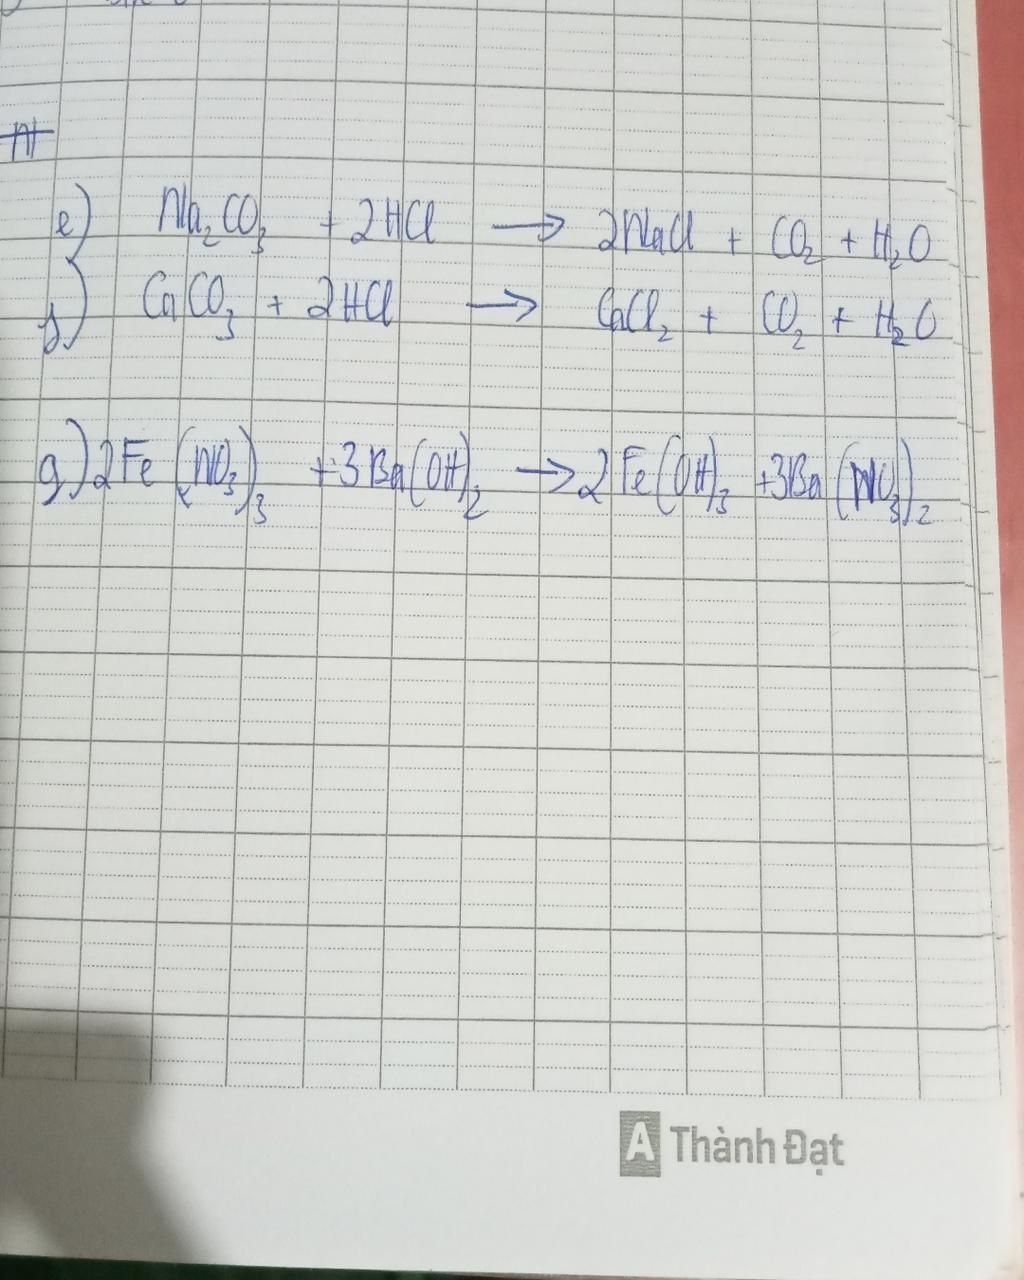 e) Na₂CO₃ + 2HCl → 2NaCl + CO₂ + H₂O
f) CaCO₃ + 2HCl → CaCl₂ + CO₂ + H₂O
g) 2Fe(NO₃)₃ + 3Ba(OH)₂ → 2Fe(OH)₃ + 3Ba(NO₃)₂
A Thành Đạt